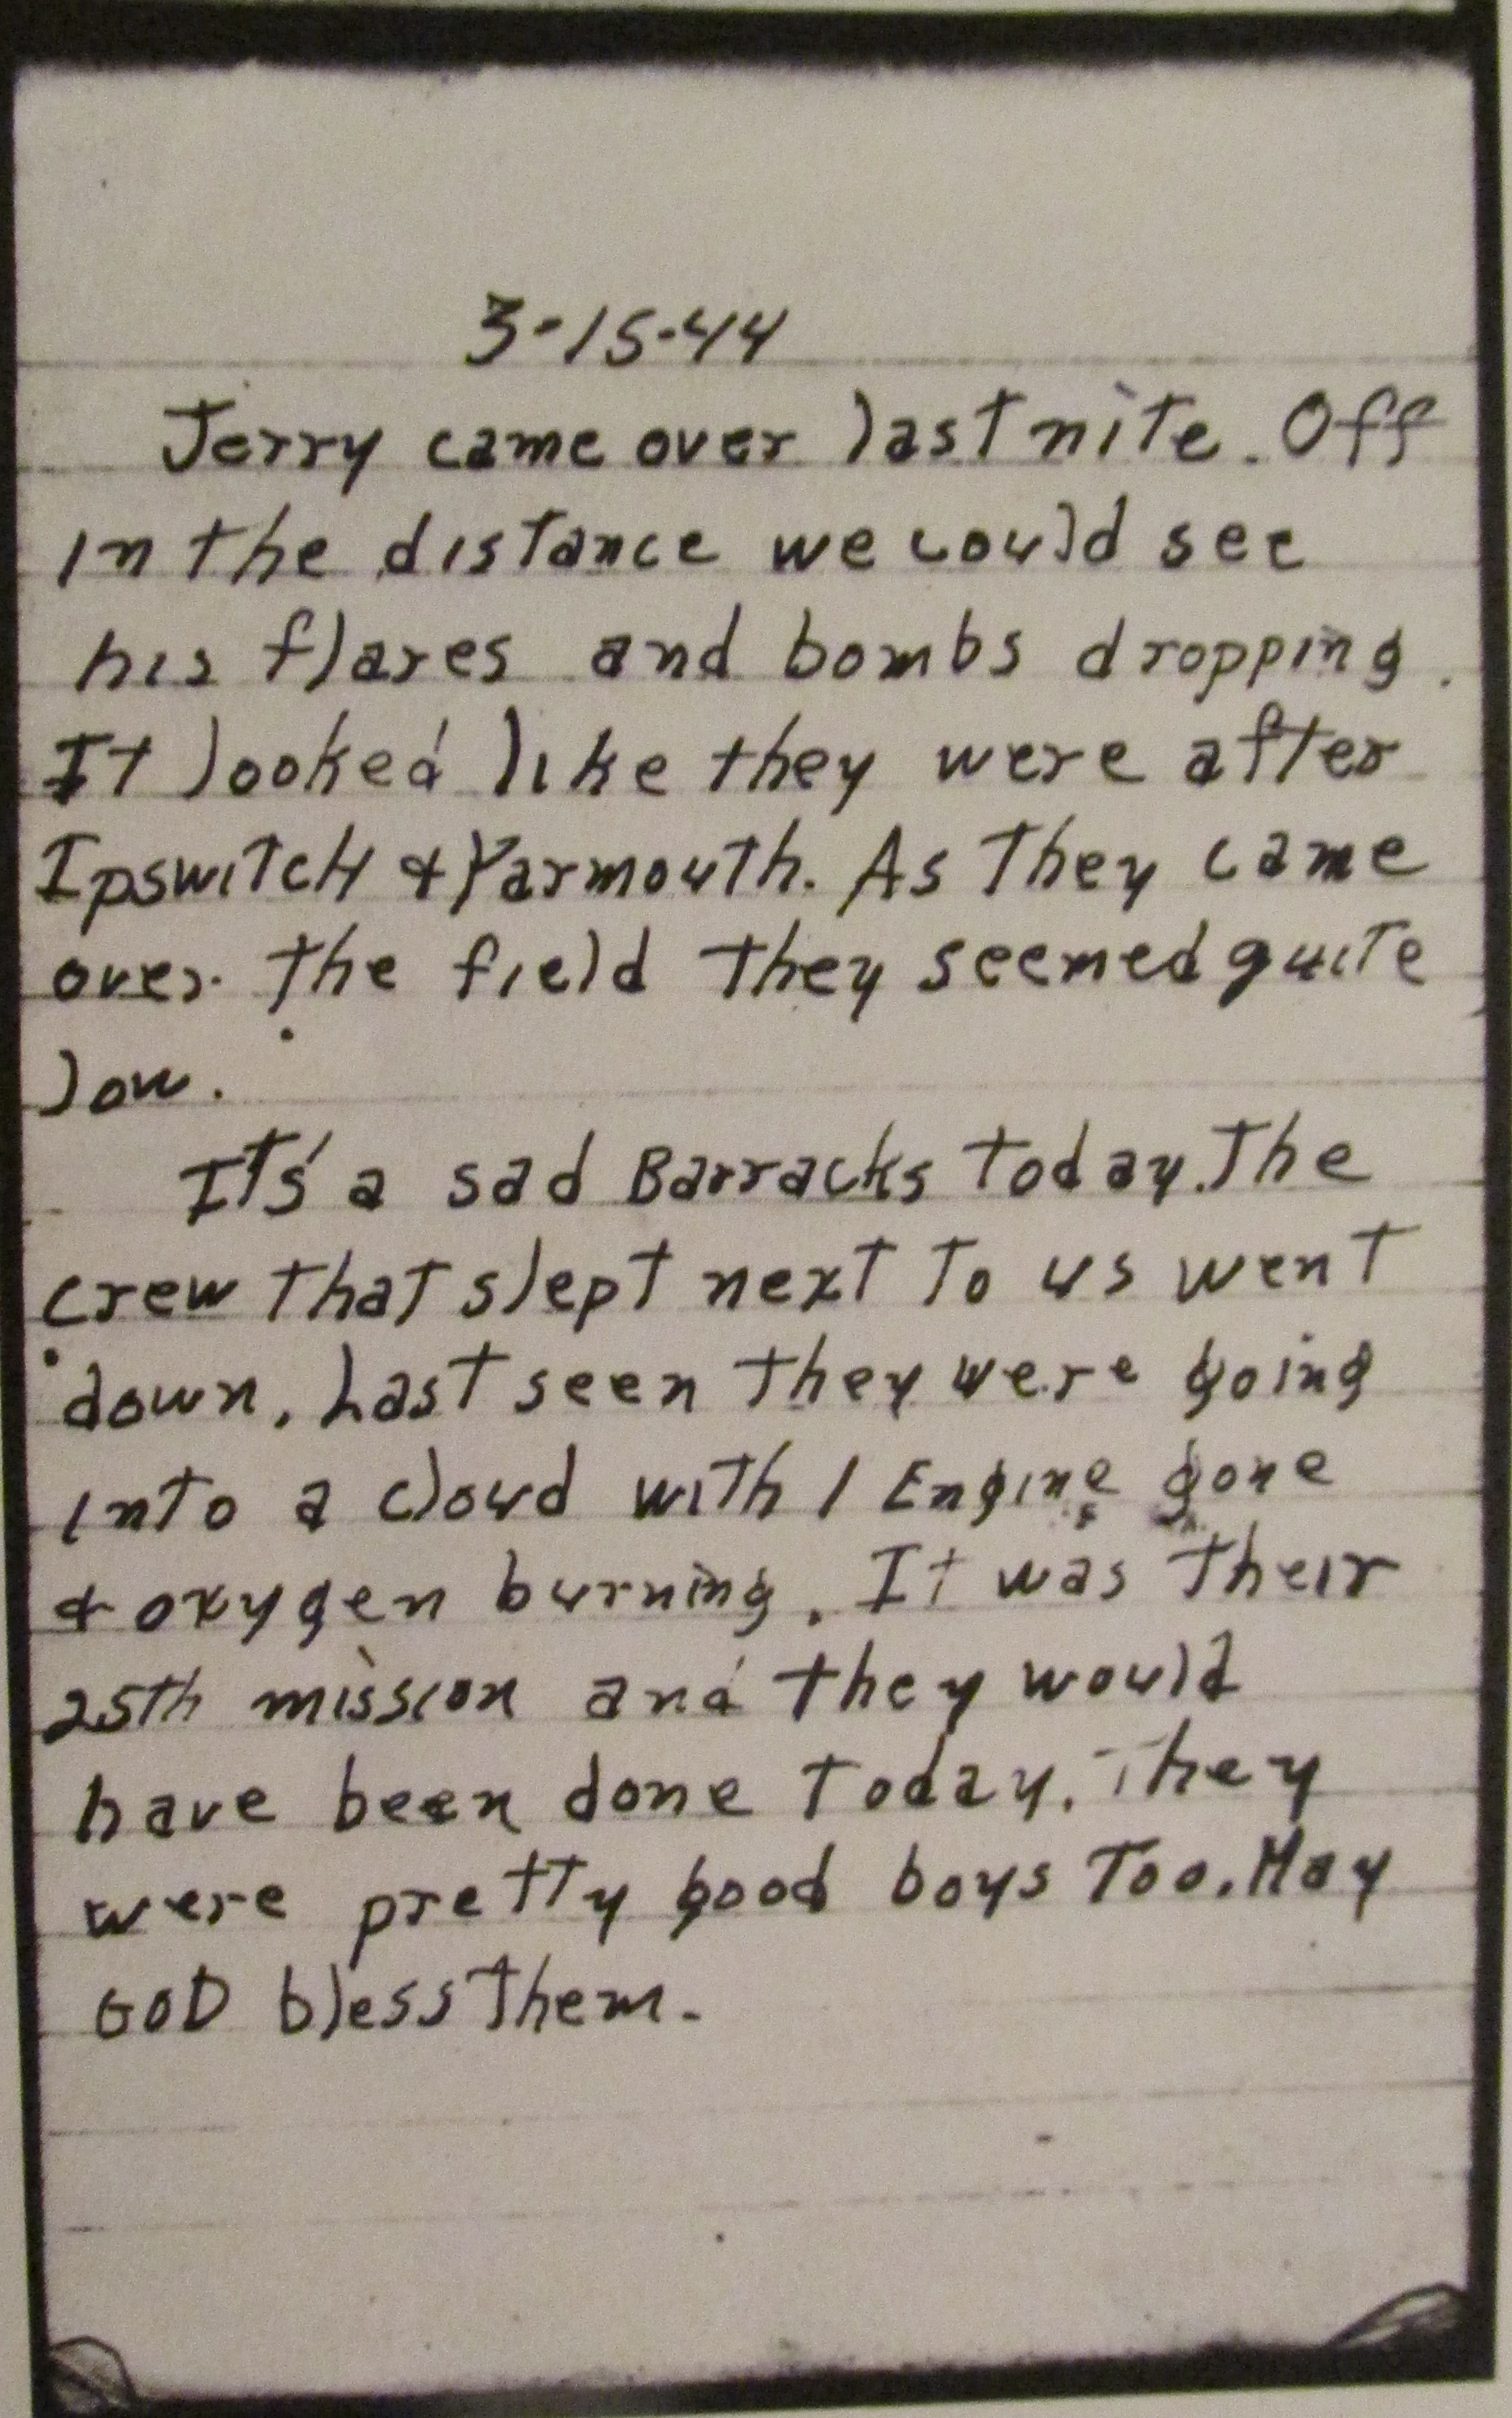 3-15-44
Jerry came over last nite. Off
in the distance we could see
his flares and bombs dropping.
It looked like they were after
Ipswitch & Yarmouth. As they came
over the field they seemed quite
low.
It's a sad Barracks today. The
crew that slept next to us went
down. Last seen they were going
into a cloud with 1 Engine gone
& oxygen burning. It was their
25th mission and they would
have been done today. They
were pretty good boys too. May
GOD bless them.